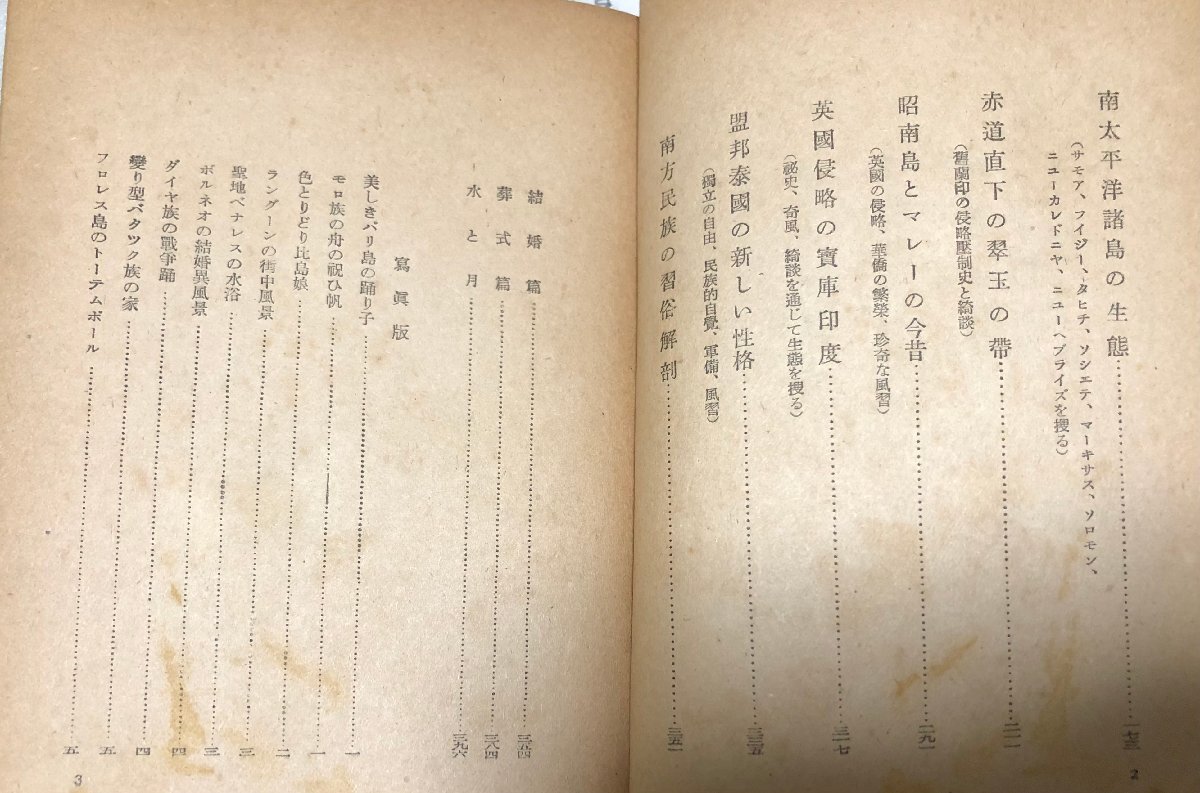 南太平洋諸島の生態……一七三
(サモア、フイジー、タヒチ、ソシエテ、マーキサス、ソロモン、
ニユーカレドニヤ、ニユーヘブライズを捜る)
赤道直下の翠玉の帶……二二一
(舊蘭印の侵略壓制史と綺談)
昭南島とマレーの今昔……二九一
(英國の侵略、華僑の繁榮、珍奇な風習)
英國侵略の寶庫印度……三一七
(祕史、奇風、綺談を通じて生態を捜る)
盟邦泰國の新しい性格……三三五
(獨立の自由、民族的自覺、軍備、風習)
南方民族の習俗解剖……三五二
2
結婚篇……三五四
葬式篇……三八四
水と月……三九六
寫眞版
美しきバリ島の踊り子……一
モロ族の舟の祝ひ帆……一
色とりどり比島娘……二
ラングーンの街中風景……三
聖地ベナレスの水浴……三
ボルネオの結婚異風景……四
ダイヤ族の戰爭踊……四
變り型バタツク族の家……五
フロレス島のトーテムポール……五
3